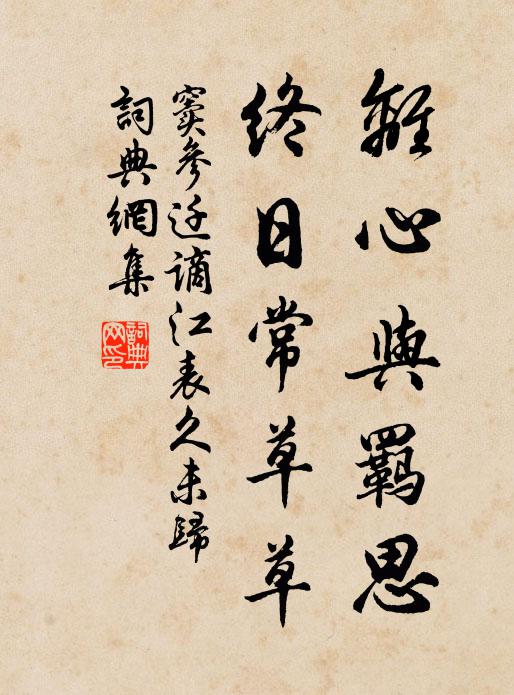 離心與羈思
終日常草草
竇參迁謫江表久未歸
詞典網集
詞典網印